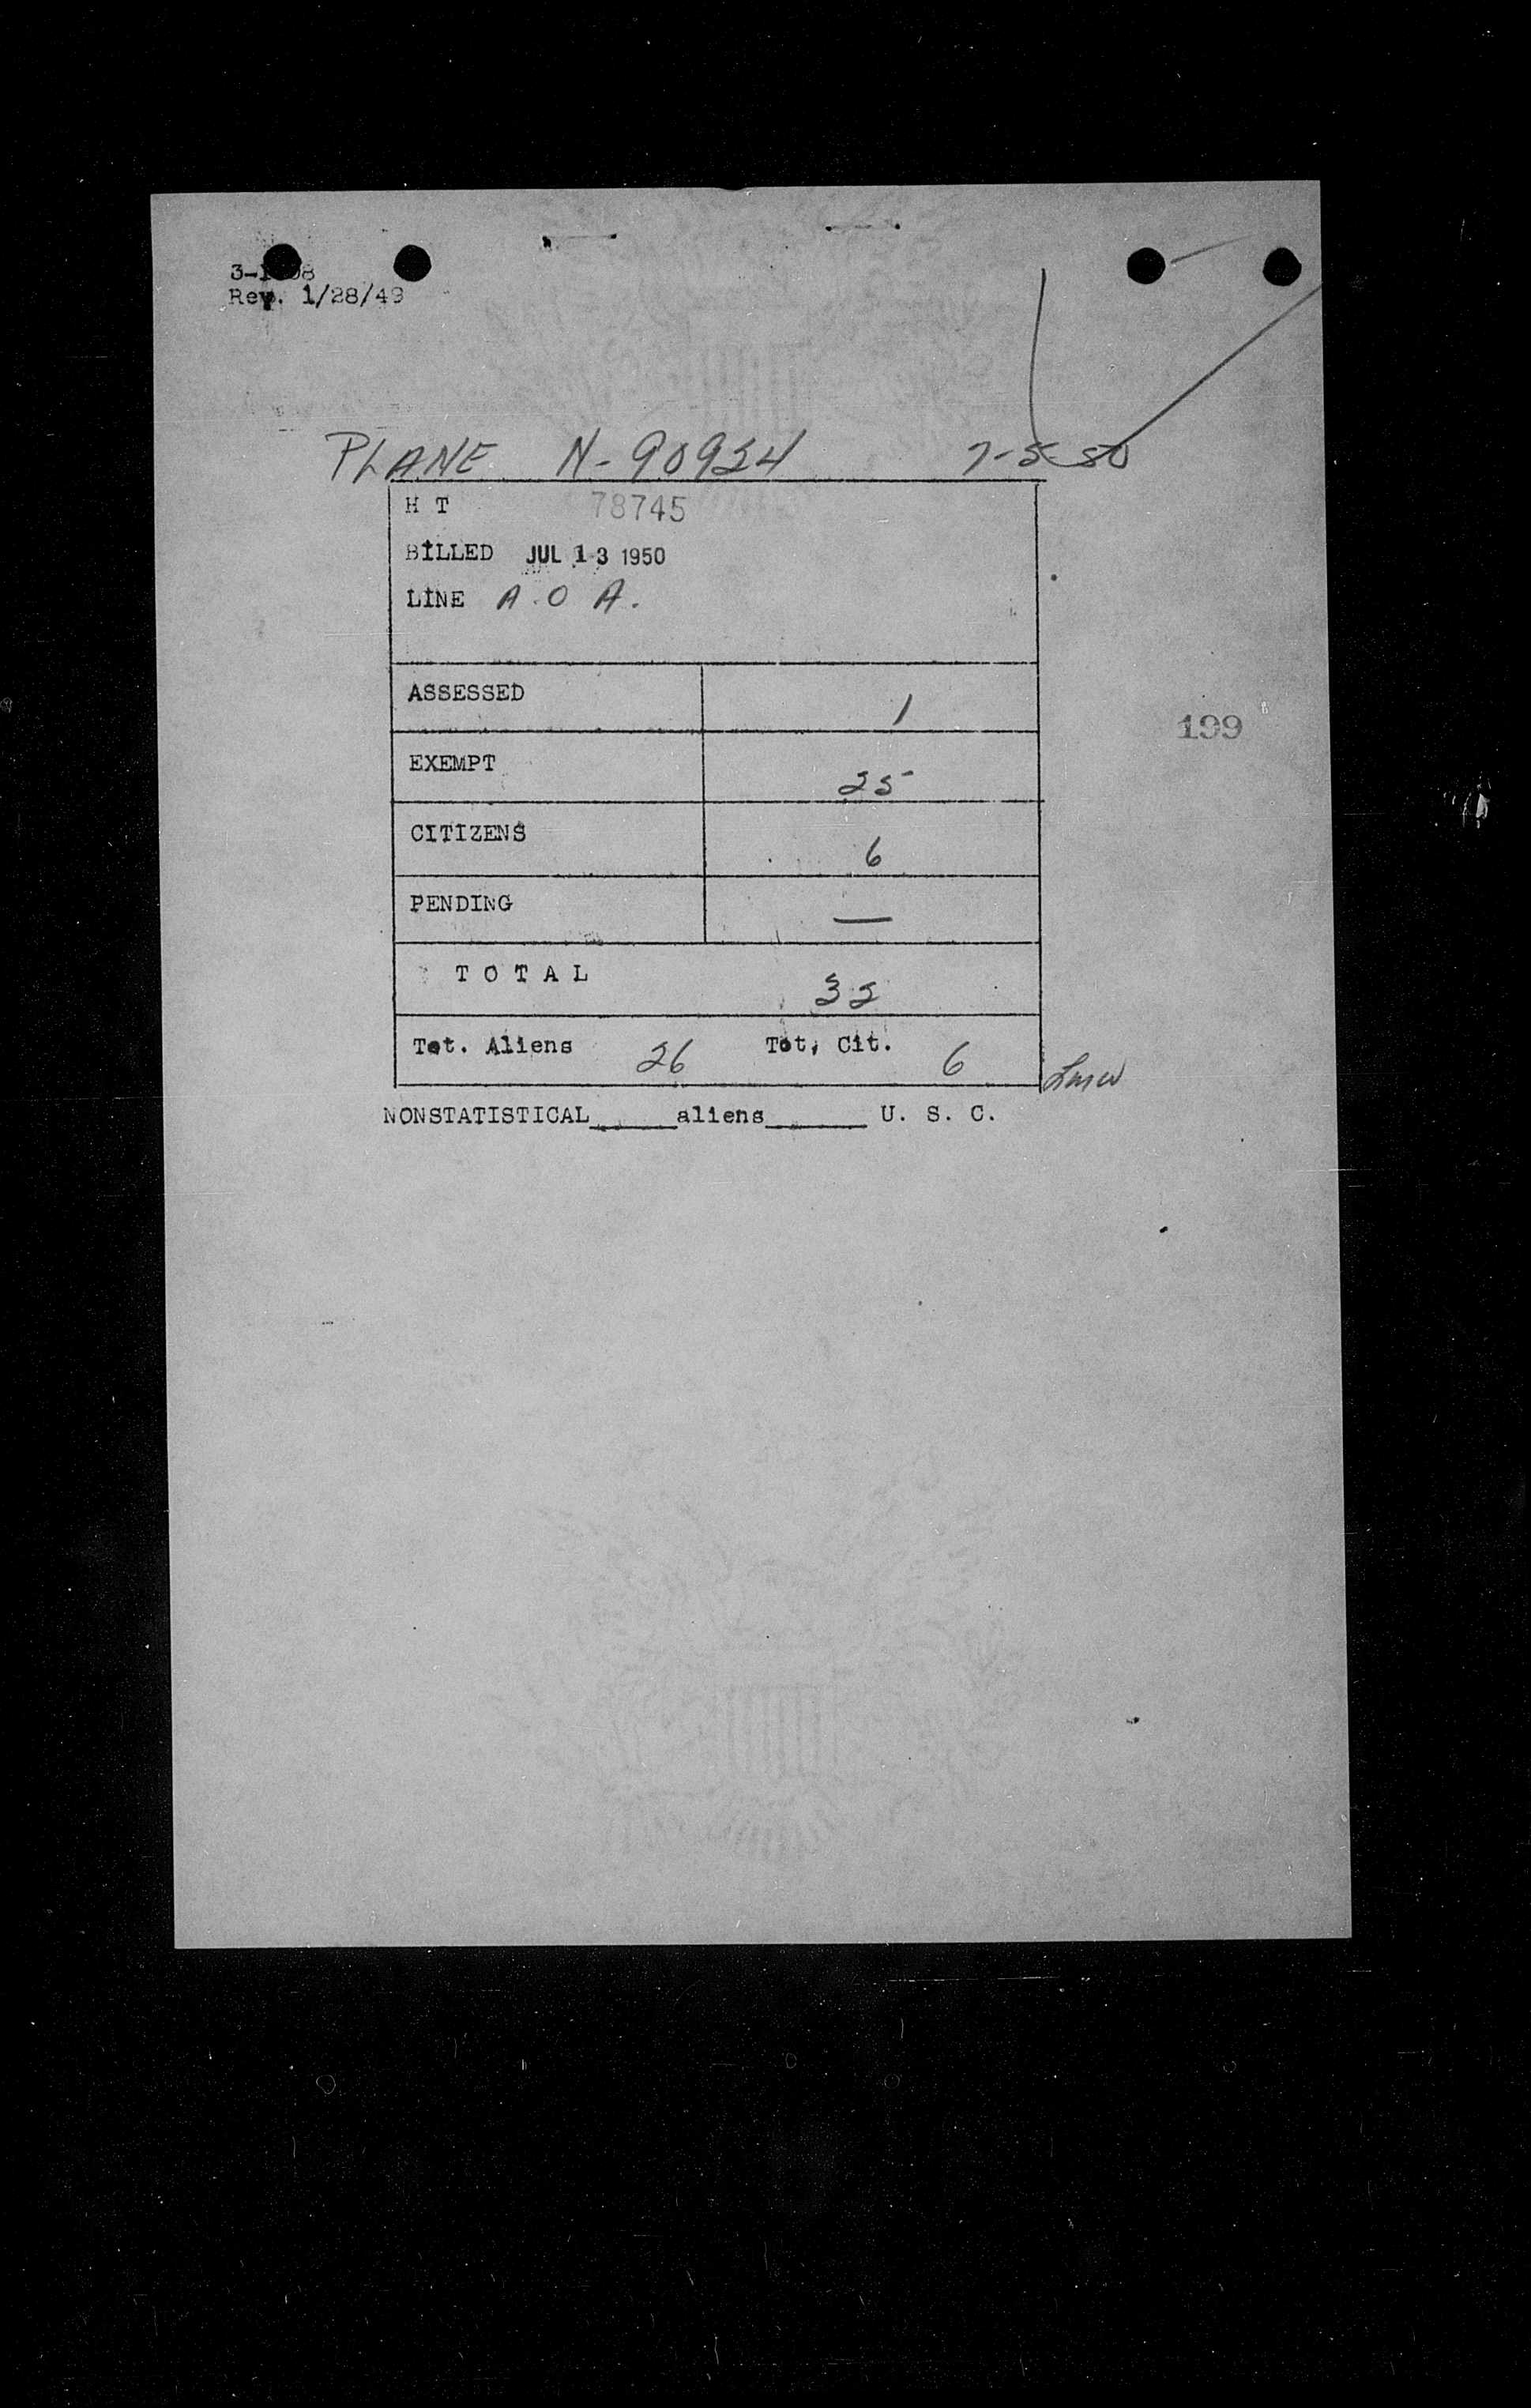 Rev. 1/28/49
PLANE N-90924 7-5-50
H T 78745
BILLED JUL 13 1950
LINE A.O A.
ASSESSED 1
199
EXEMPT 25
CITIZENS 6
PENDING —
T O T A L 32
Tot. Aliens 26 Tot. Cit. 6
NONSTATISTICAL_____aliens______ U. S. C.